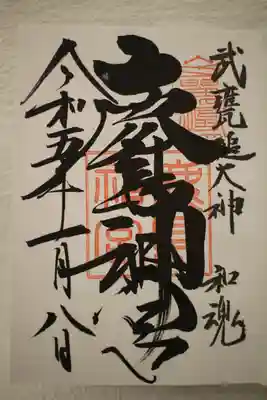 武甕槌大神 和魂
鹿島神宮
令和五年十一月八日
鹿島神宮